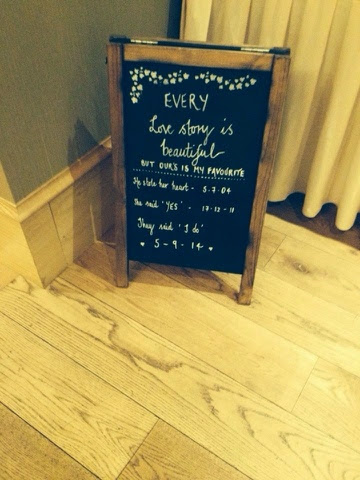 EVERY
Love story is
beautiful
BUT OUR'S IS MY FAVOURITE
He stole her heart - 5.7.04
She said 'YES' - 17-12-11
They said 'I do'
5-9-14